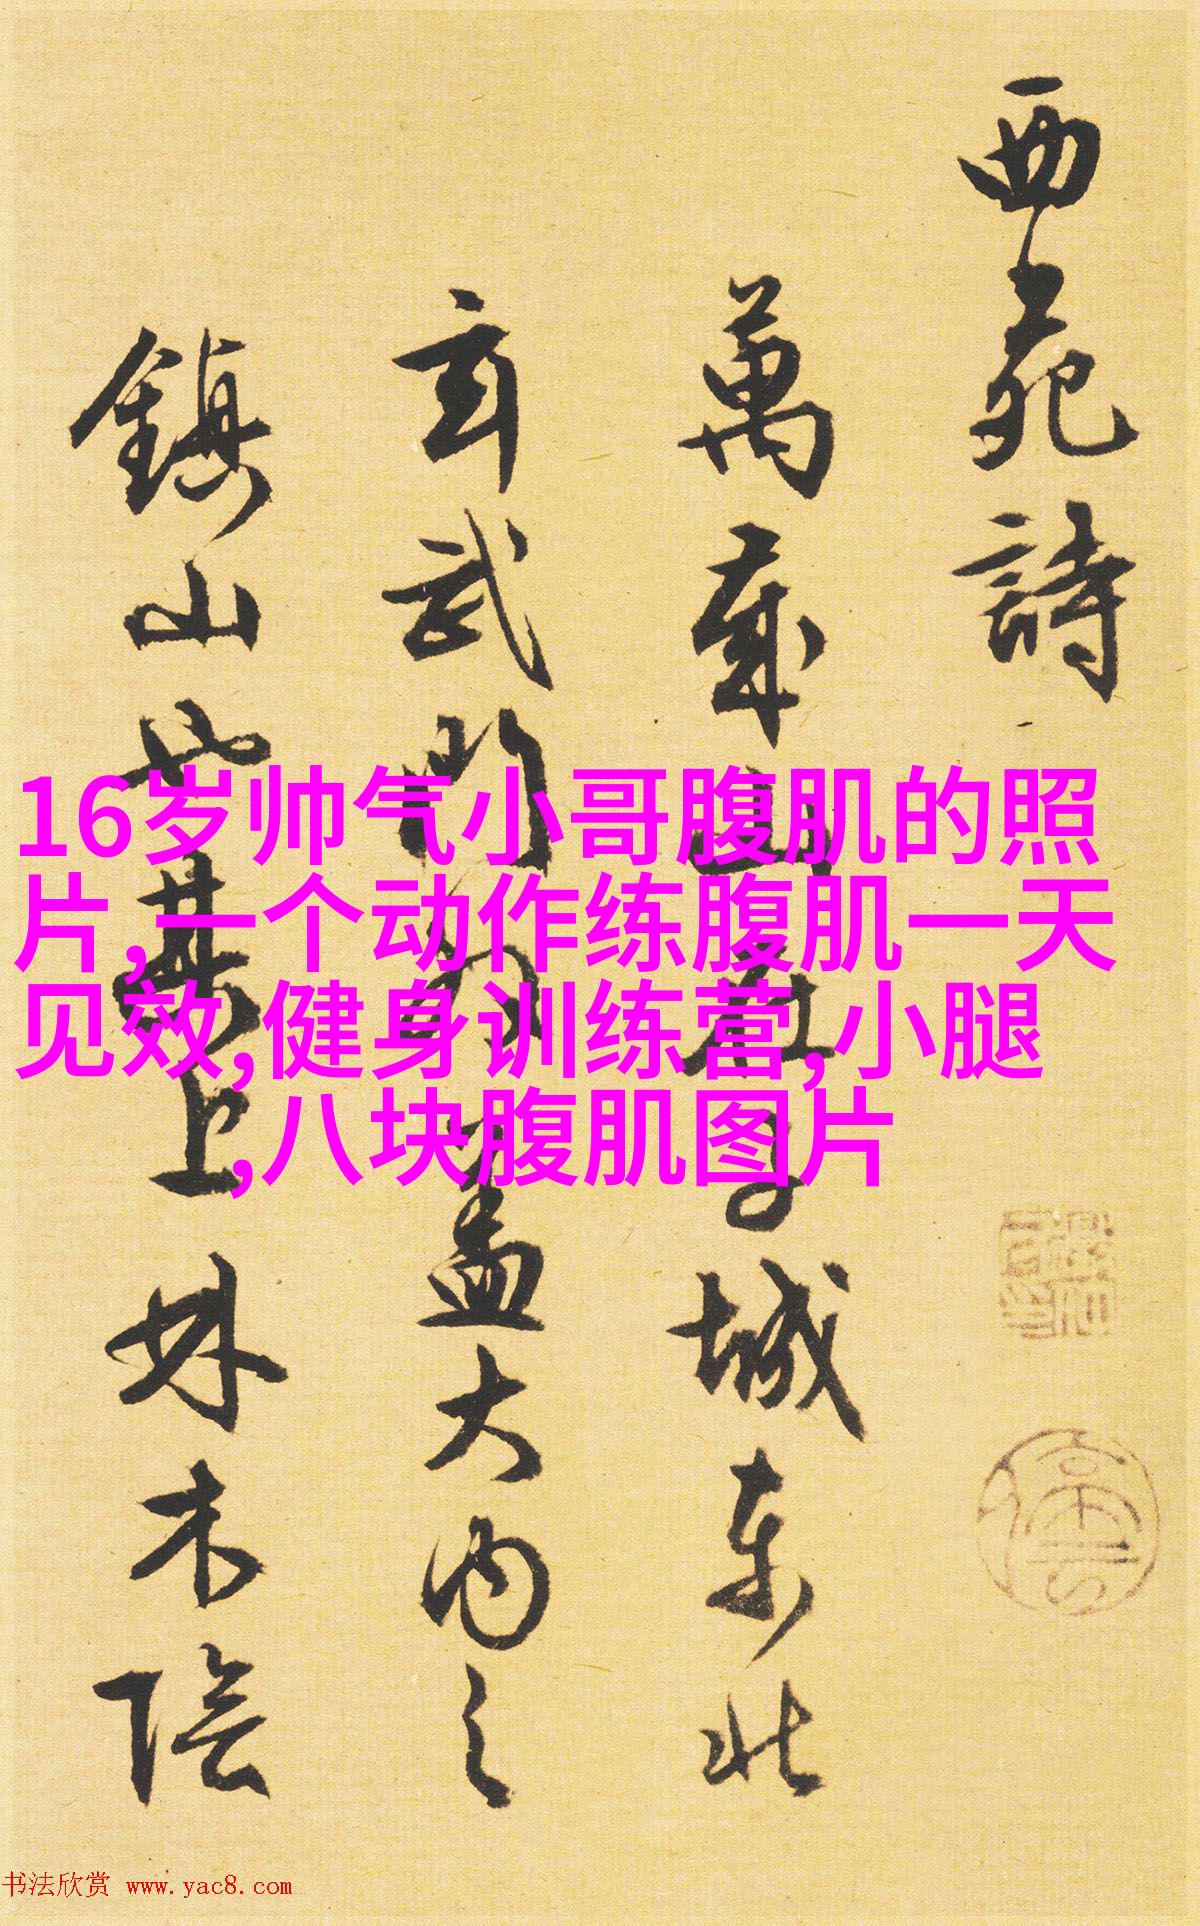 西苑詩
萬歲山在子城東北
玄武門外蓋大内之
鎮山也其上林木陰
16岁帅气小哥腹肌的照
片,一个动作练腹肌一天
见效,健身训练营,小腿
,八块腹肌图片
书法欣赏 www.yac8.com